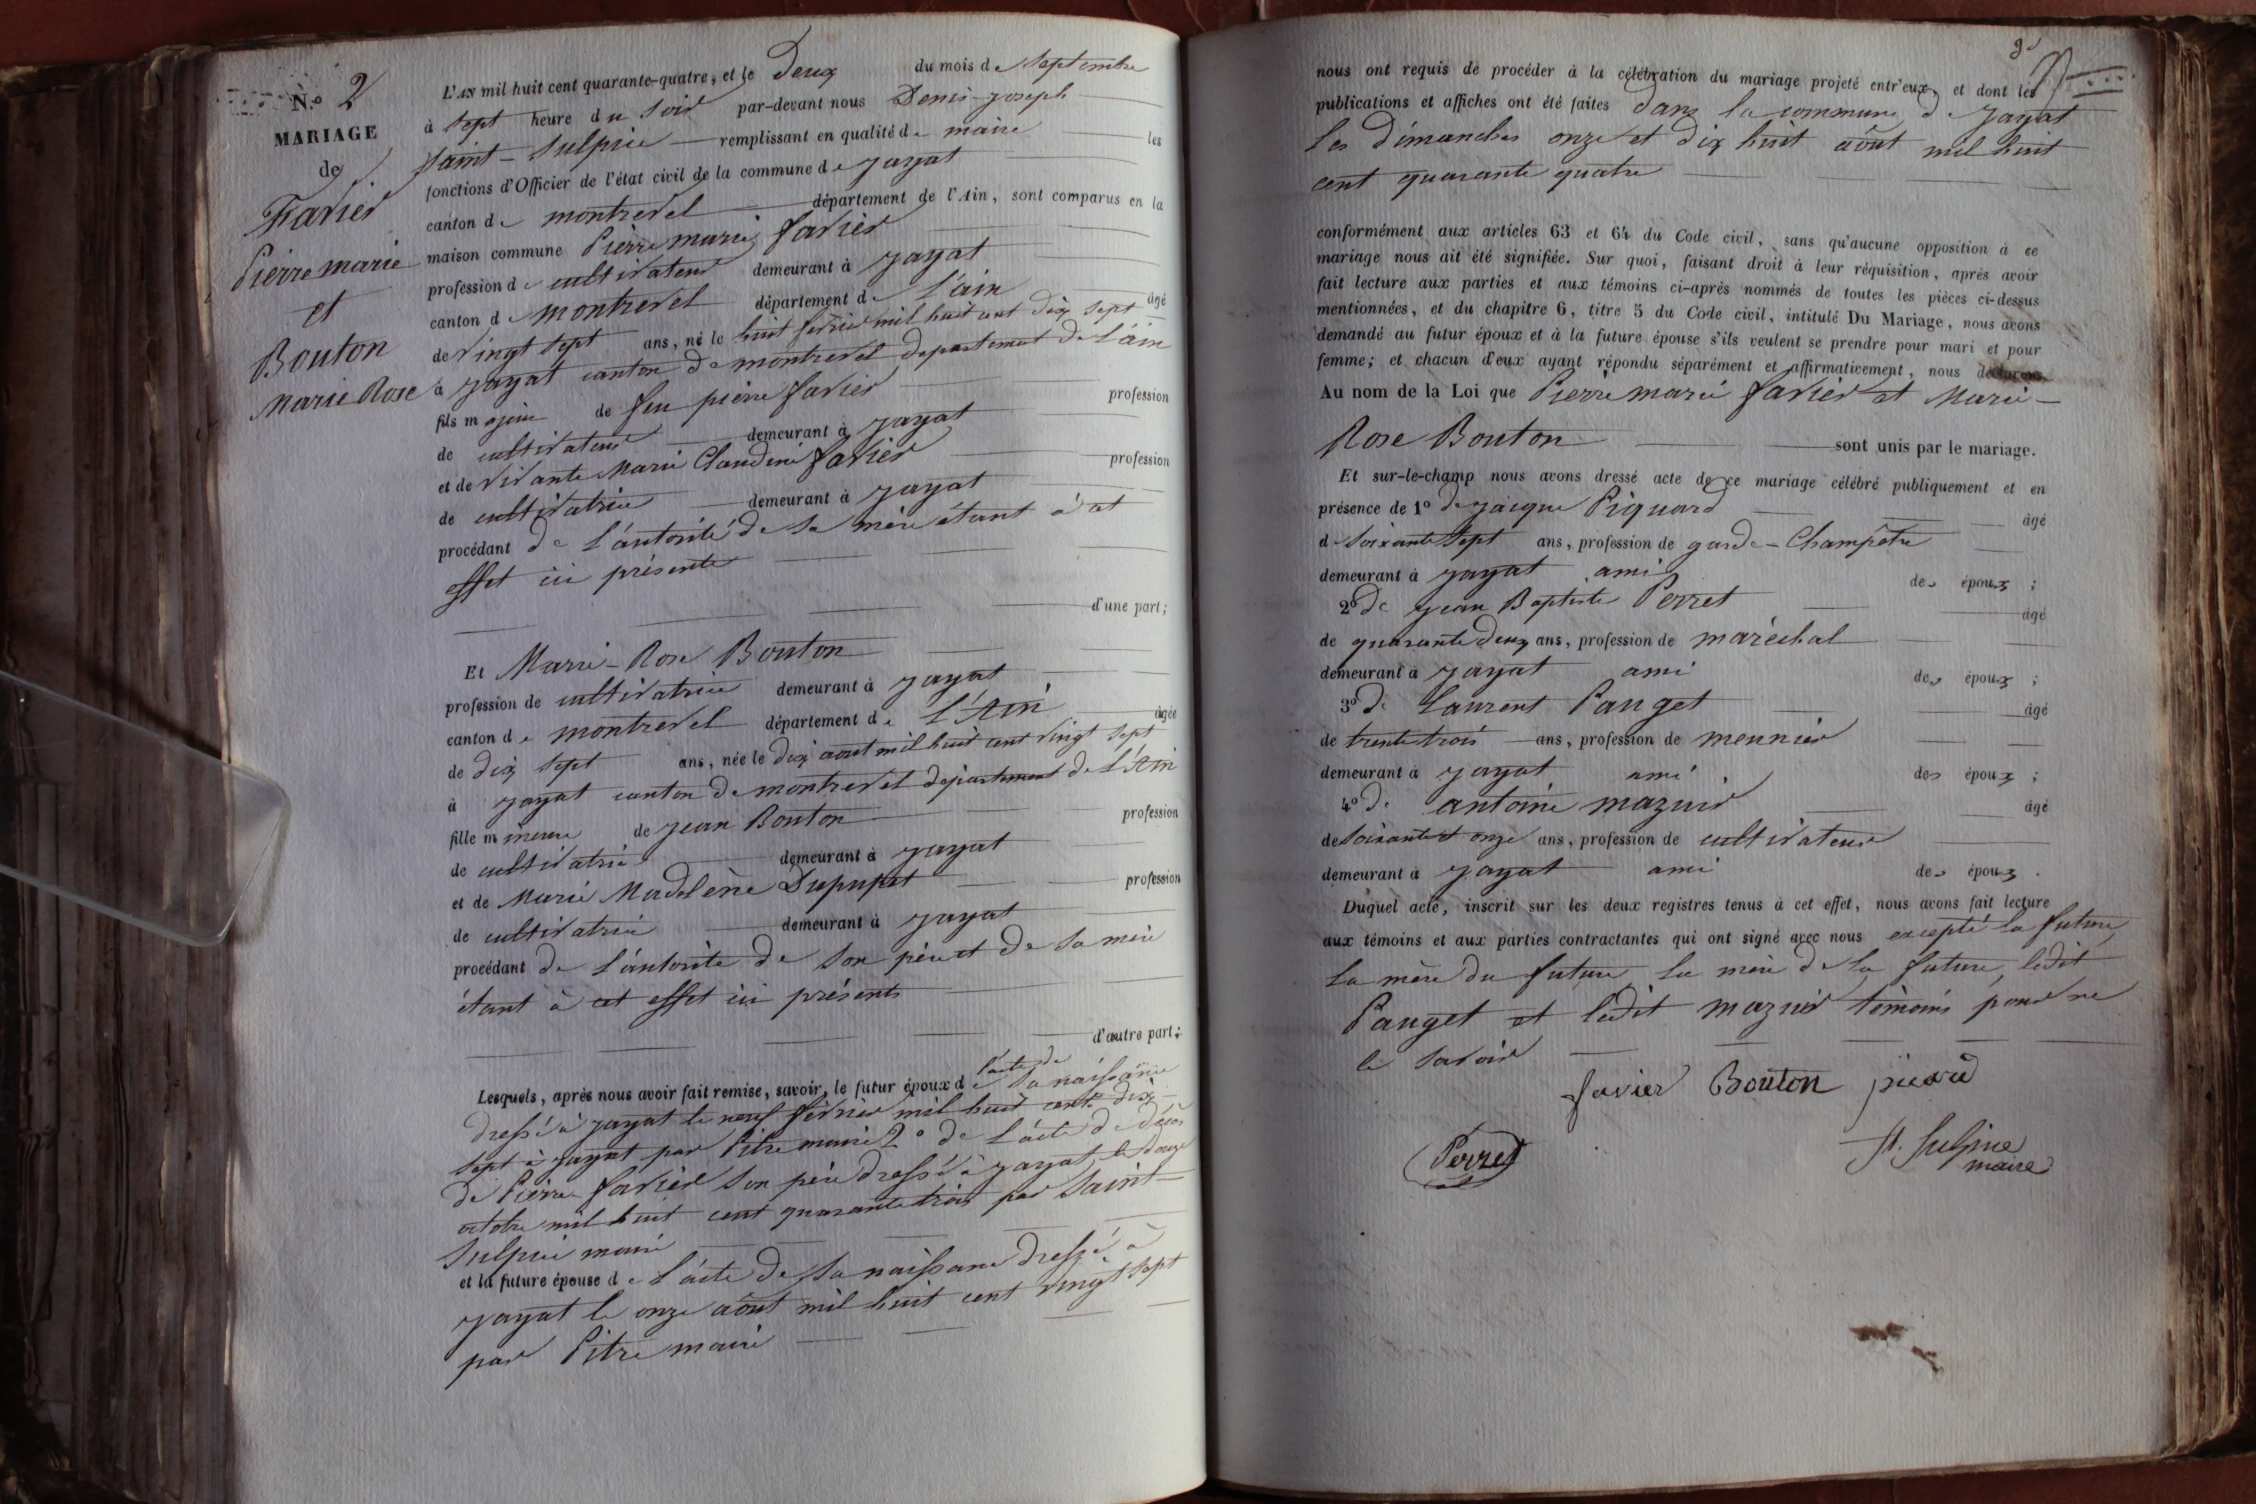 N.o 2
MARIAGE
de
Favier
Pierre marie
et
Bouton
Marie Rose
L'AN mil huit cent quarante-quatre, et le Deux du mois de Septembre
à Sept heure du Soir par-devant nous Denis-joseph
Saint-Sulpice remplissant en qualité de maire les
fonctions d'Officier de l'état civil de la commune de jayat
canton de montrevel département de l'Ain, sont comparus en la
maison commune Pierre marie favier
profession de cultivateur demeurant à jayat
canton de montrevel département de L'ain âgé
de Vingt Sept ans, né le huit fevrier mil huit cent dix Sept
à jayat canton de montrevel département de L'ain
fils majeur de feu pierre favier profession
de cultivateur demeurant à jayat
et de vivante Marie Claudine favier profession
de cultivatrice demeurant à jayat
procédant de L'autorité de Sa mère étant à cet
effet ici présente
d'une part;
Et Marie-Rose Bouton
profession de cultivatrice demeurant à jayat
canton de montrevel département de L'Ain âgée
de dix Sept ans, née le dix aout mil huit cent Vingt Sept
à jayat canton de montrevel département de L'Ain
fille mineure de jean Bouton profession
de cultivatrice demeurant à jayat
et de Marie Madelène Dupupet profession
de cultivatrice demeurant à jayat
procédant de L'autorité de Son père et de Sa mère
étant à cet effet ici présents
d'autre part;
Lesquels, après nous avoir fait remise, savoir, le futur époux de l'acte de Sa naissance
dressé à jayat le neuf février mil huit cent dix-
Sept à jayat par Pitre maire 2o de L'acte de décès
de Pierre favier Son père dressé à jayat le douze
octobre mil huit cent quarante trois par Saint-
Sulpice maire
et la future épouse de L'acte de Sa naissance dressé à
jayat le onze août mil huit cent vingt Sept
par Pitre maire
nous ont requis de procéder à la célébration du mariage projeté entr'eux, et dont les
publications et affiches ont été faites dans la commune de jayat
Les dimanches onze et dix huit août mil huit
cent quarante quatre
conformément aux articles 63 et 64 du Code civil, sans qu'aucune opposition à ce
mariage nous ait été signifiée. Sur quoi, faisant droit à leur réquisition, après avoir
fait lecture aux parties et aux témoins ci-après nommés de toutes les pièces ci-dessus
mentionnées, et du chapitre 6, titre 5 du Code civil, intitulé Du Mariage, nous avons
demandé au futur époux et à la future épouse s'ils veulent se prendre pour mari et pour
femme; et chacun d'eux ayant répondu séparément et affirmativement, nous déclarons
Au nom de la Loi que Pierre marie favier et Marie-
Rose Bouton sont unis par le mariage.
Et sur-le-champ nous avons dressé acte de ce mariage célébré publiquement et en
présence de 1o de jacque Piquard âgé
d Soixante Sept ans, profession de garde-Champêtre
demeurant à jayat ami des époux;
2o de jean Baptiste Perret âgé
de quarante deux ans, profession de maréchal
demeurant à jayat ami des époux;
3o de Laurent Pauget âgé
de trente trois ans, profession de meunier
demeurant à jayat ami des époux;
4o de antoine mazuir âgé
de Soixante et onze ans, profession de cultivateur
demeurant à jayat ami des époux.
Duquel acte, inscrit sur les deux registres tenus à cet effet, nous avons fait lecture
aux témoins et aux parties contractantes qui ont signé avec nous excepté la future,
La mère du future, La mère de La future, ledit
Pauget et ledit mazuir témoins pour ne
le Savoir
favier Bouton picard
Perret
St. Sulpice
maire